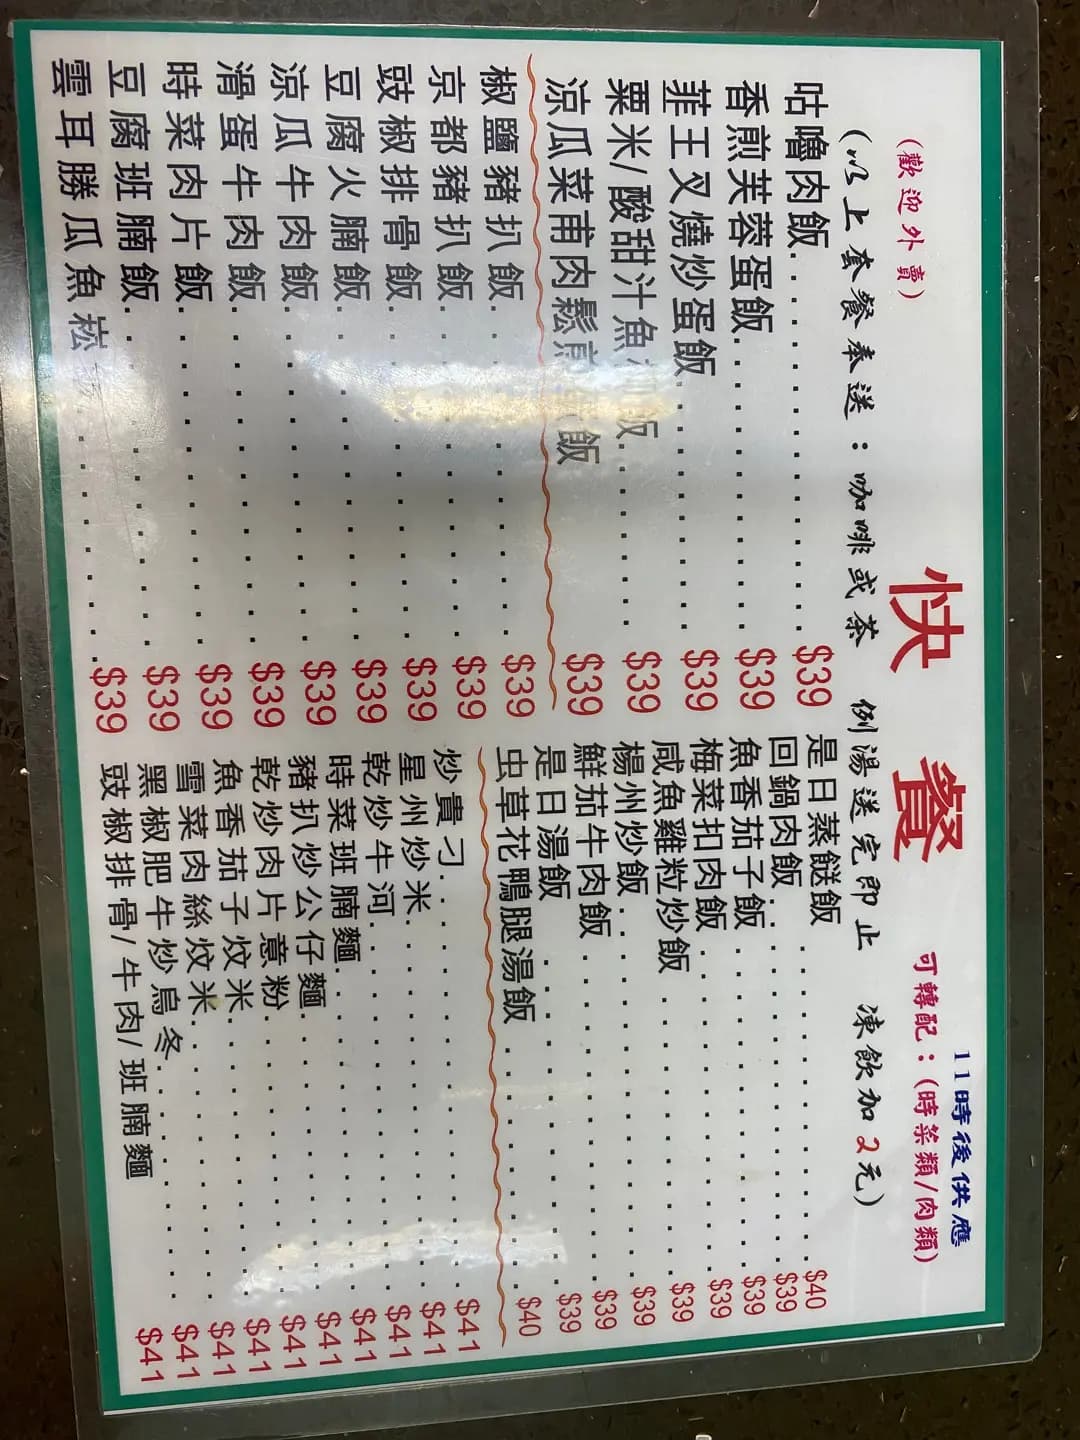 快 餐
11時後供應
(歡迎外賣)
可轉配：(時菜類/肉類)
(以上套餐奉送：咖啡或茶 例湯送完即止 凍飲加2元)
咕嚕肉飯 $39
香煎芙蓉蛋飯 $39
韮王叉燒炒蛋飯 $39
粟米/酸甜汁魚 飯 $39
涼瓜菜甫肉鬆煎蛋飯 $39
椒鹽豬扒飯 $39
京都豬扒飯 $39
豉椒排骨飯 $39
豆腐火腩飯 $39
涼瓜牛肉飯 $39
滑蛋牛肉飯 $39
時菜肉片飯 $39
豆腐班腩飯 $39
雲耳勝瓜魚崧 $39
是日蒸餸飯 $40
回鍋肉飯 $39
魚香茄子飯 $39
梅菜扣肉飯 $39
咸魚雞粒炒飯 $39
楊州炒飯 $39
鮮茄牛肉飯 $39
是日湯飯 $39
虫草花鴨腿湯飯 $40
炒貴刁 $41
星州炒米 $41
乾炒牛河 $41
時菜班腩麵 $41
豬扒炒公仔麵 $41
乾炒肉片意粉 $41
魚香茄子炆米 $41
雪菜肉絲炆米 $41
黑椒肥牛炒烏冬 $41
豉椒排骨/牛肉/班腩麵 $41